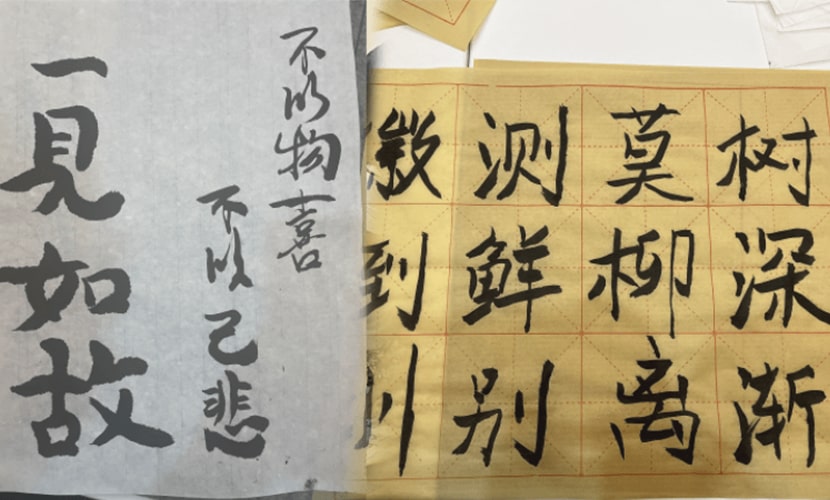 不以物喜
不以己悲
一見如故
树深渐
莫柳离
测鲜别
到